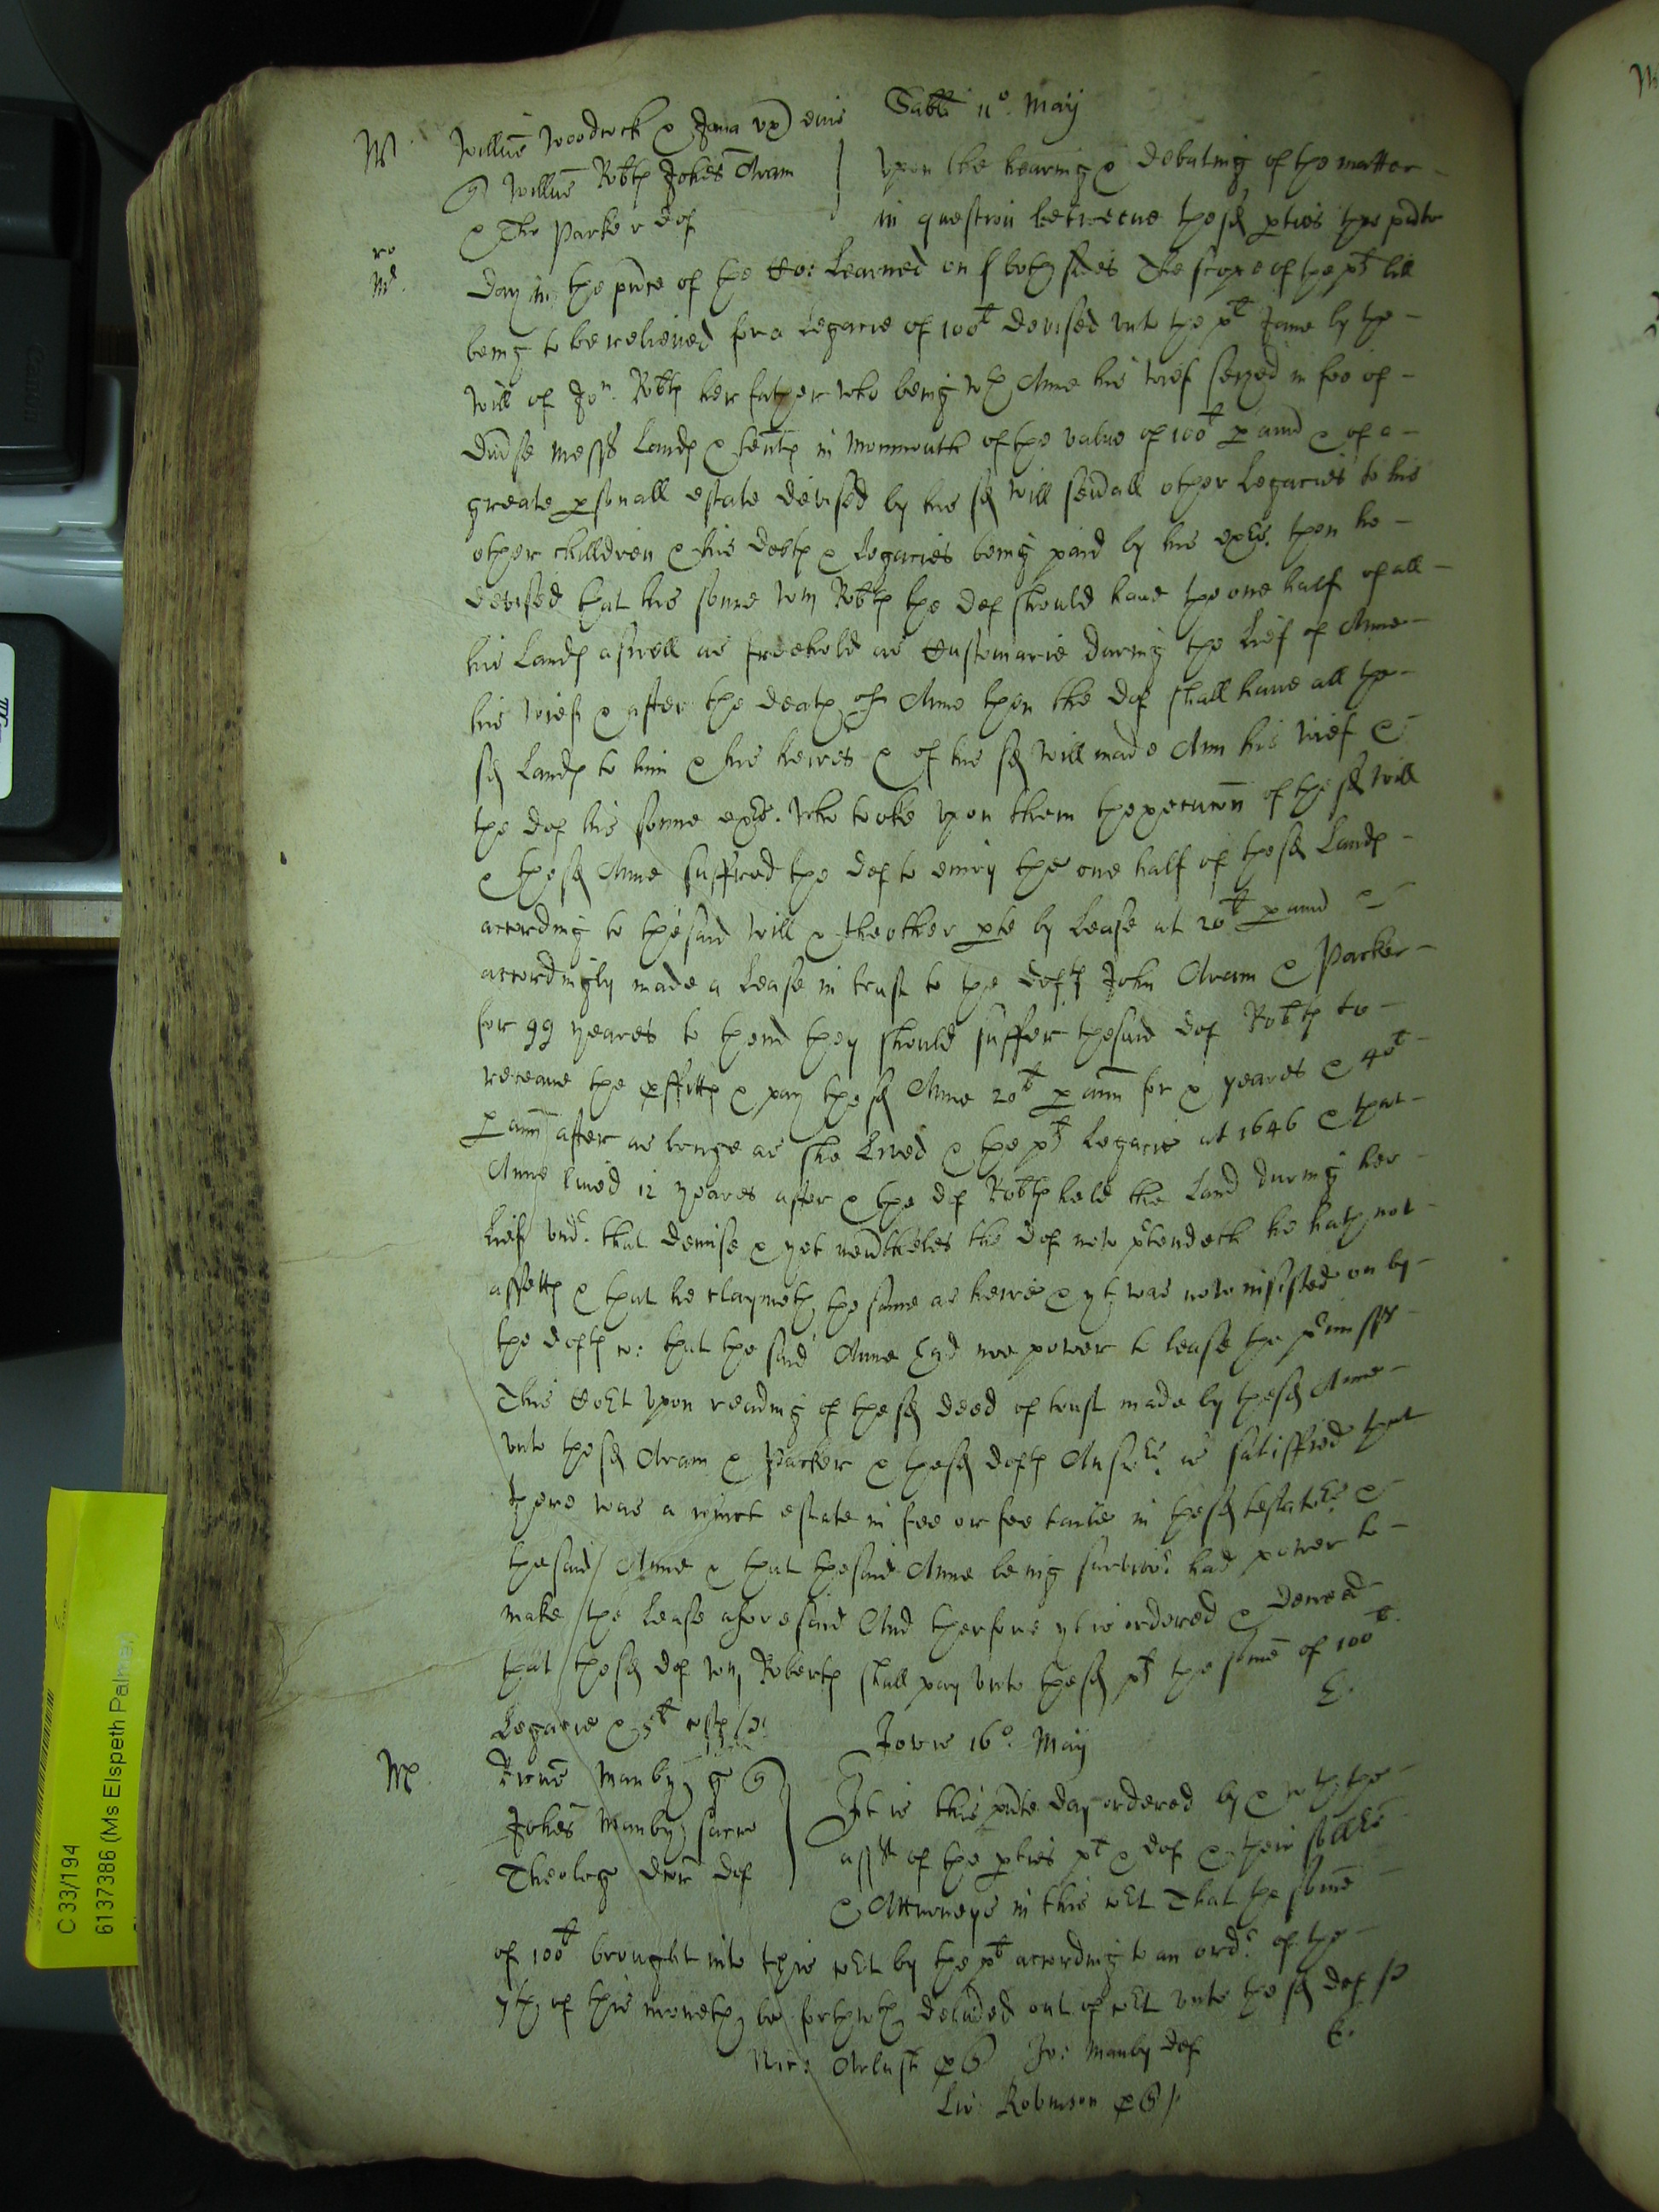 Sabti 11o. May
W Willus Woodcock & Jana ux eius
q Willus Robtes Johes Aram } Upon the hearing & debating of the matter
& Tho Parker def in question betweene the sd pties the pnte
ro
Md.
day in the pnce of the Co: Learned on both sides The scope of the plt bill
being to be relieved for a Legacie of 100l devised unto the plt Jane by the
Will of Jon. Robtes her father who being wth Anne his wief seized in fee of
divse messs Landes & tentes in Monmouth of the value of 100l p annu & of a
greate psonall estate devised by his sd Will sevall other Legacies to his
other children & his debtes & legacies being paid by his exrs. then he
devised that his sonne Wm Robtes the def should have the one half of all
his Landes aswell as freehold as Customarie during the lief of Anne
his wief & after the death of Anne then the def shall have all the
sd Landes to him & his heires & of his sd Will made Ann his wief &
the def his sonne exrs. who tooke upon them thexecution of the sd Will
& the sd Anne suffred the def to enioy the one half of the sd Landes
according to the said Will & the other pte by Lease at 20l p annu &
accordingly made a Lease in trust to the deftes John Aram & Parker
for 99 yeares to thend they should suffer the said def Robtes to
receave the pffittes & pay the sd Anne 20l p ann for x yeares & 40l
p ann after as longe as she lived & the plt Legacie at 1646 & that
Anne lived 12 yeares after & the def Robtes held the Land during her
lief undr. that demise & yet nevtheles the def now ptendeth he hath not
assettes & that he claymeth the same as heire & yt was now insisted on by
the deftes co: that the said Anne had noe power to lease the pmisses
This Cort upon reading of the sd deed of trust made by the sd Anne
unto the sd Aram & Parker & the sd deftes Answrs. is satisffied that
there was a ioynct estate in fee or fee taile in the sd testator &
the said Anne & that the said Anne being survivor had power to
make the Lease aforesaid And therfore yt is ordered & decreed
that the sd def Wm Robertes shall pay unto the sd plt the some of 100l
Legacie & 5l costes E.
Jovis 16o. May
Mp. Manby g q
Johes Manby sacre } It is this pnte day ordered by & wth the
Theologie dcor def asst of the pties plt & def & their sollrs
& Attorneys in this cort That the some
of 100l brought into this cort by the plt according to an ordr of the
7th of this moneth be forthwth delivred out of cort unto the sd def
Ric: Arlush p q Jo: Manby def E.
Robinson p q
C 33/194
6137386 (Ms Elspeth Palmer
Canon